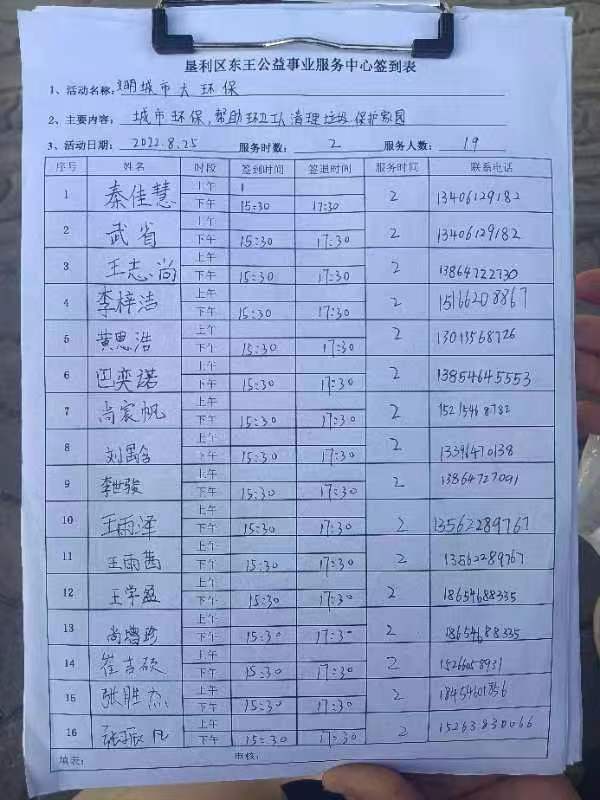 垦利区东王公益事业服务中心签到表
1、活动名称: 城市大环保
2、主要内容: 城市环保,帮助环卫工人清理垃圾保护家园
3、活动日期: 2022.8.25 服务时数: 2 服务人数: 19
序号 姓名 时段 签到时间 签退时间 服务时数 联系电话
1 秦佳慧 上午
下午 15:30 17:30 2 13406129182
2 武省 上午
下午 15:30 17:30 2 13406129182
3 王志尚 上午
下午 15:30 17:30 2 13864722730
4 李梓洁 上午
下午 15:30 17:30 2 15166208867
5 黄思浩 上午
下午 15:30 17:30 2
6 巴奕诺 上午
下午 15:30 17:30 2 13854645553
7 尚宸帆 上午
下午 15:30 17:30 2 15215468782
8 上午
下午 15:30 17:30 2 13396470138
9 李世骏 上午
下午 15:30 17:30 2 13864727091
10 王雨泽 上午
下午 15:30 17:30 2 13562289767
11 王雨茜 上午
下午 15:30 17:30 2 13562289767
12 王学盈 上午
下午 15:30 17:30 2 18654688335
13 上午
下午 15:30 17:30 2 18654688335
14 崔吉硕 上午
下午 15:30 17:30 2
15 张胜杰 上午
下午 15:30 17:30 2
16 上午
下午 15:30 17:30 2 15263830066
填表: 审核: